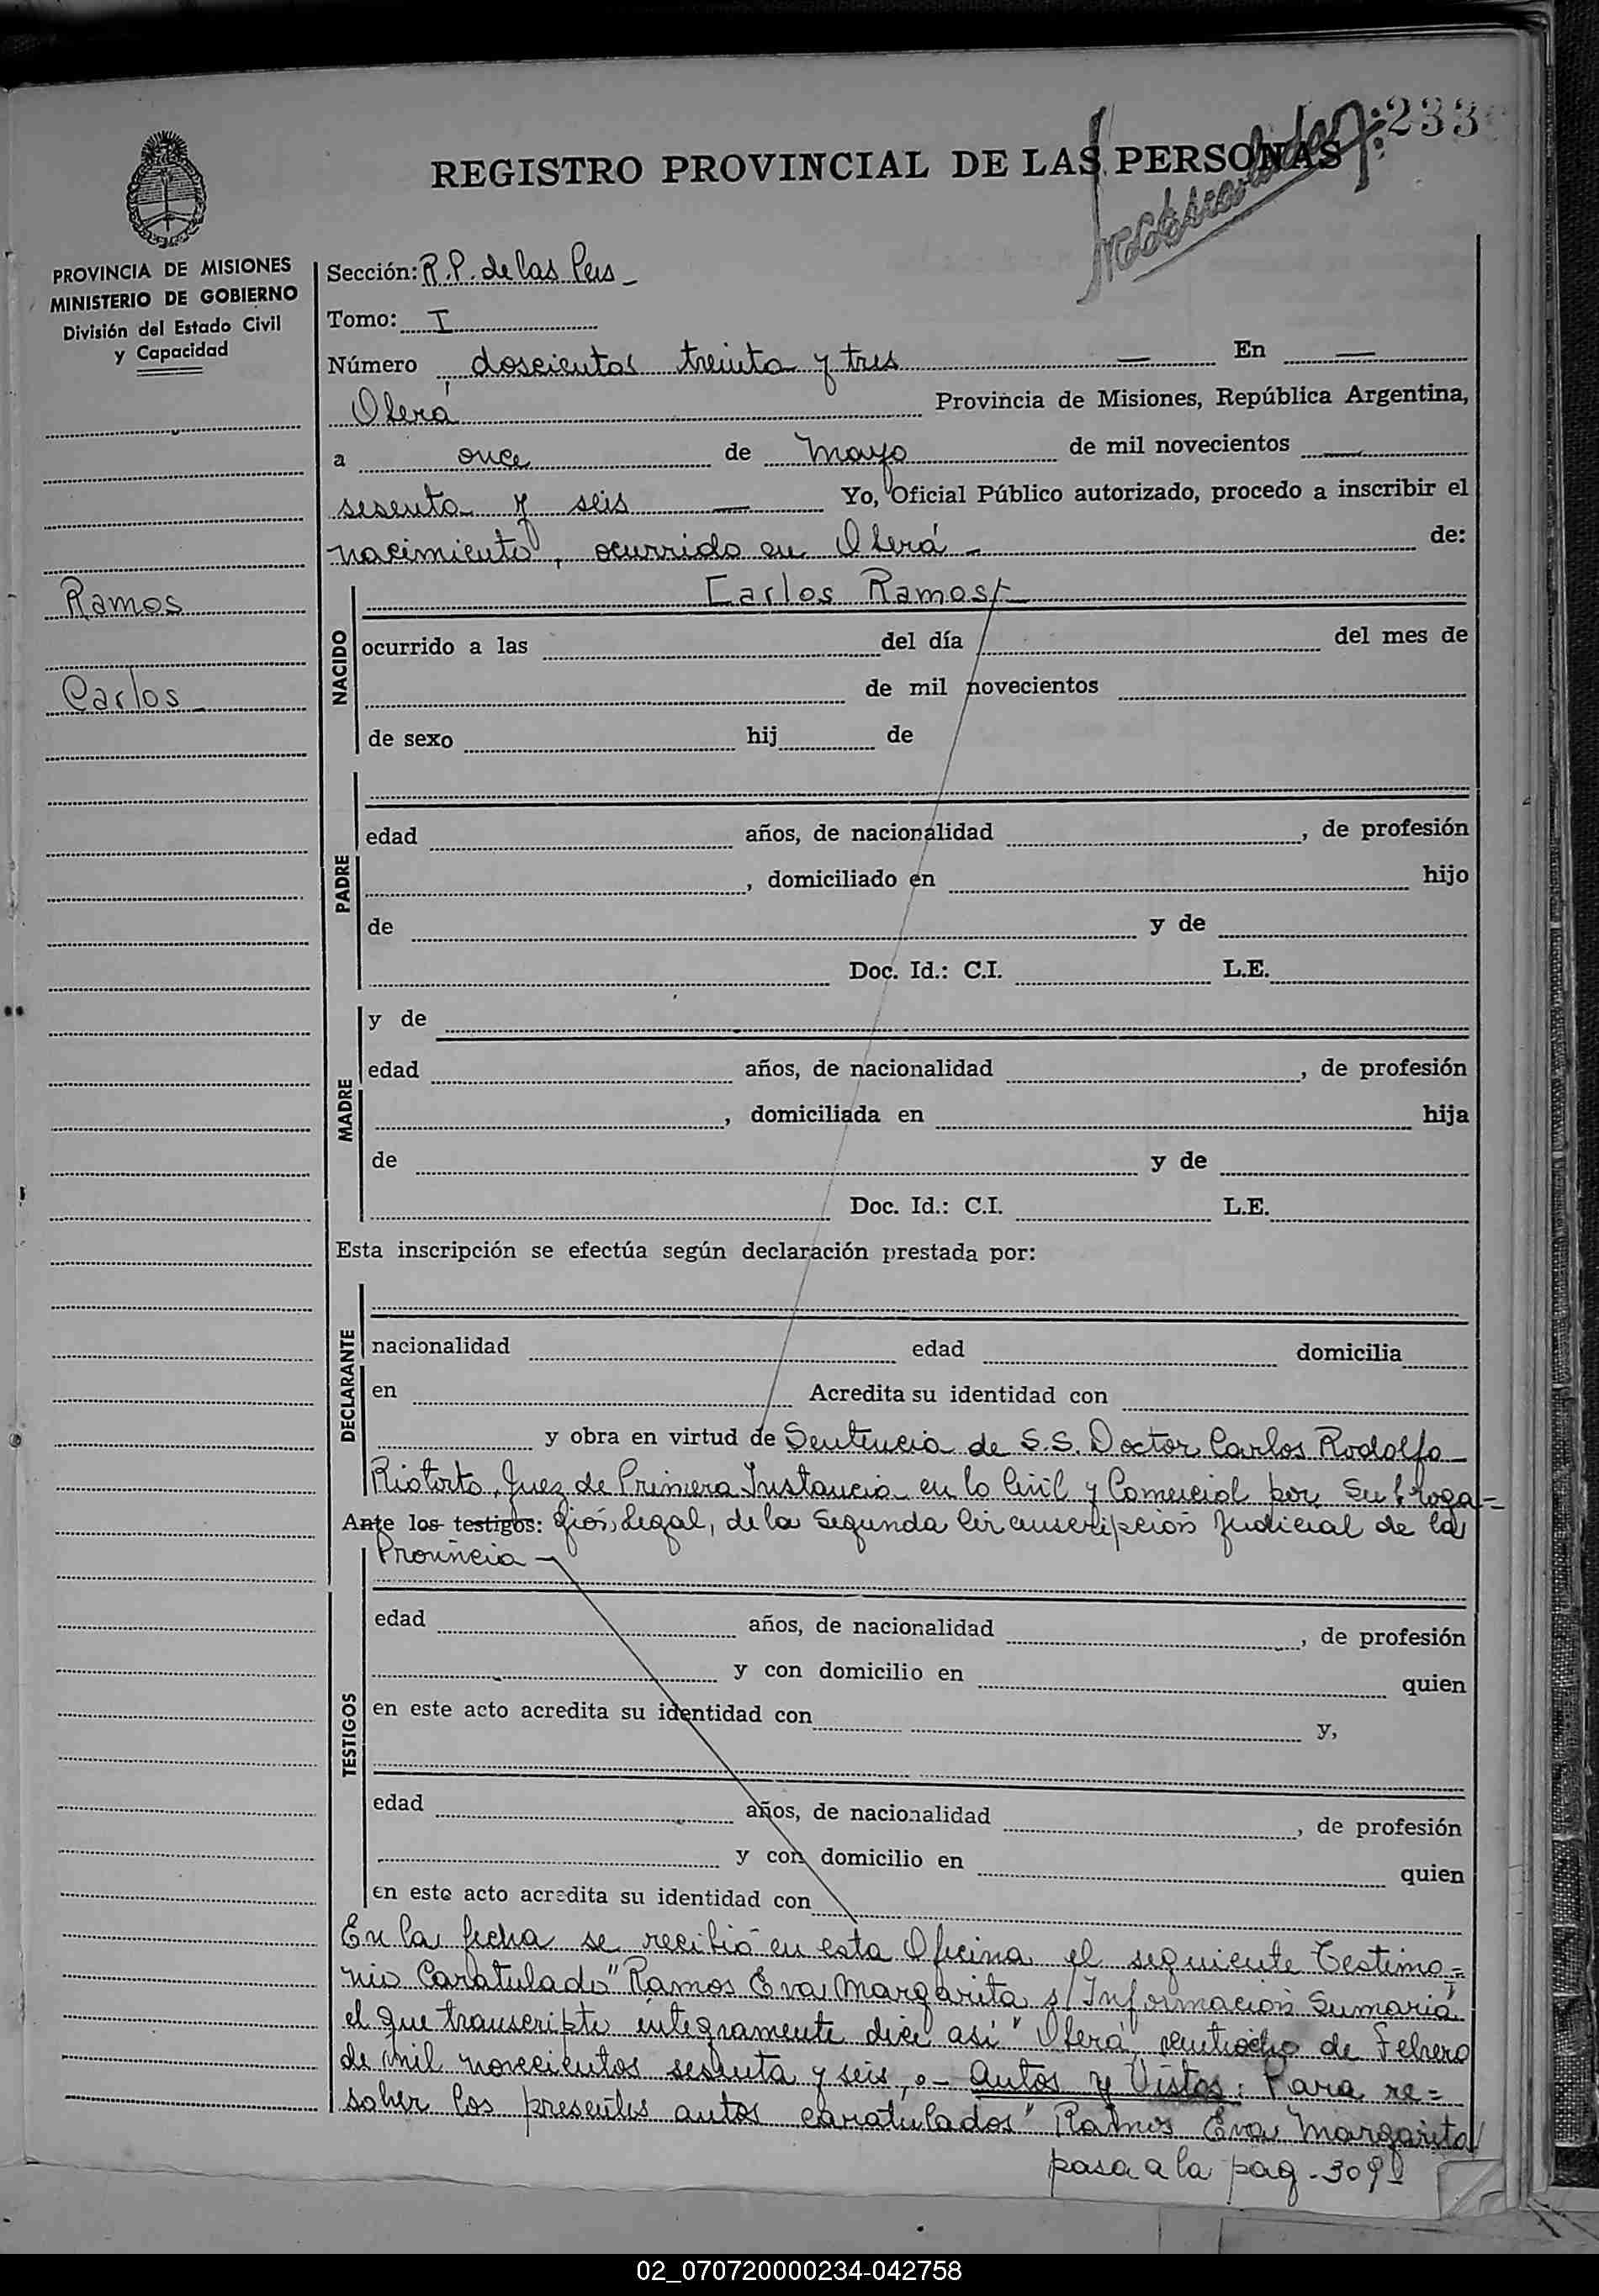 233
REGISTRO PROVINCIAL DE LAS PERSONAS
PROVINCIA DE MISIONES
MINISTERIO DE GOBIERNO
División del Estado Civil
y Capacidad
Ramos
Carlos
Sección: R.P. de las Pers
Tomo: I
Número doscientos treinta y tres — En —
Oberá Provincia de Misiones, República Argentina,
a once de Mayo de mil novecientos —
sesenta y seis — Yo, Oficial Público autorizado, procedo a inscribir el
nacimiento, ocurrido en Oberá - de:
NACIDO
Carlos Ramos
ocurrido a las del día del mes de
de mil novecientos
de sexo hij de
PADRE
edad años, de nacionalidad , de profesión
, domiciliado en hijo
de y de
Doc. Id.: C.I. L.E.
MADRE
y de
edad años, de nacionalidad , de profesión
, domiciliada en hija
de y de
Doc. Id.: C.I. L.E.
Esta inscripción se efectúa según declaración prestada por:
DECLARANTE
nacionalidad edad domicilia
en Acredita su identidad con
y obra en virtud de Sentencia de S.S. Doctor Carlos Rodolfo
Riotorto, Juez de Primera Instancia en lo Civil y Comercial por Subroga=
Ante los testigos: ción Legal, de la Segunda Circunscripción Judicial de la
Provincia -
TESTIGOS
edad años, de nacionalidad , de profesión
y con domicilio en quien
en este acto acredita su identidad con y,
edad años, de nacionalidad , de profesión
y con domicilio en quien
en este acto acredita su identidad con
En la fecha se recibió en esta Oficina el siguiente Testimo=
nio Caratulado "Ramos Eva Margarita s/ Información Sumaria"
el que transcripto íntegramente dice así "Oberá veintiocho de Febrero
de mil novecientos sesenta y seis, o- Autos y Vistos: Para re=
solver los presentes autos caratulados "Ramos Eva Margarita
pasa a la pag - 309
02_070720000234-042758